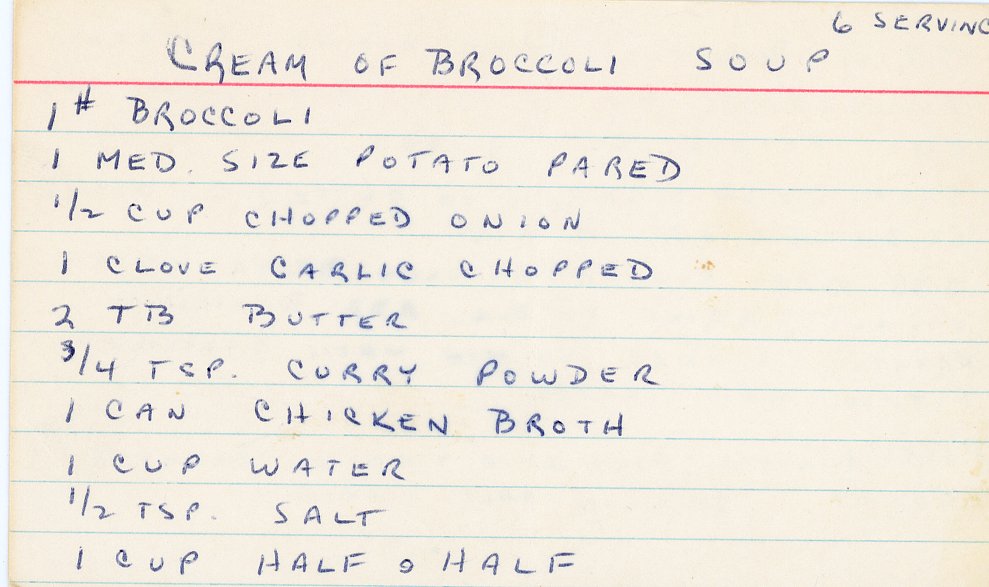 6 SERVING
CREAM OF BROCCOLI SOUP
1# BROCCOLI
1 MED. SIZE POTATO PARED
1/2 CUP CHOPPED ONION
1 CLOVE GARLIC CHOPPED
2 TB BUTTER
3/4 TSP. CURRY POWDER
1 CAN CHICKEN BROTH
1 CUP WATER
1/2 TSP. SALT
1 CUP HALF & HALF